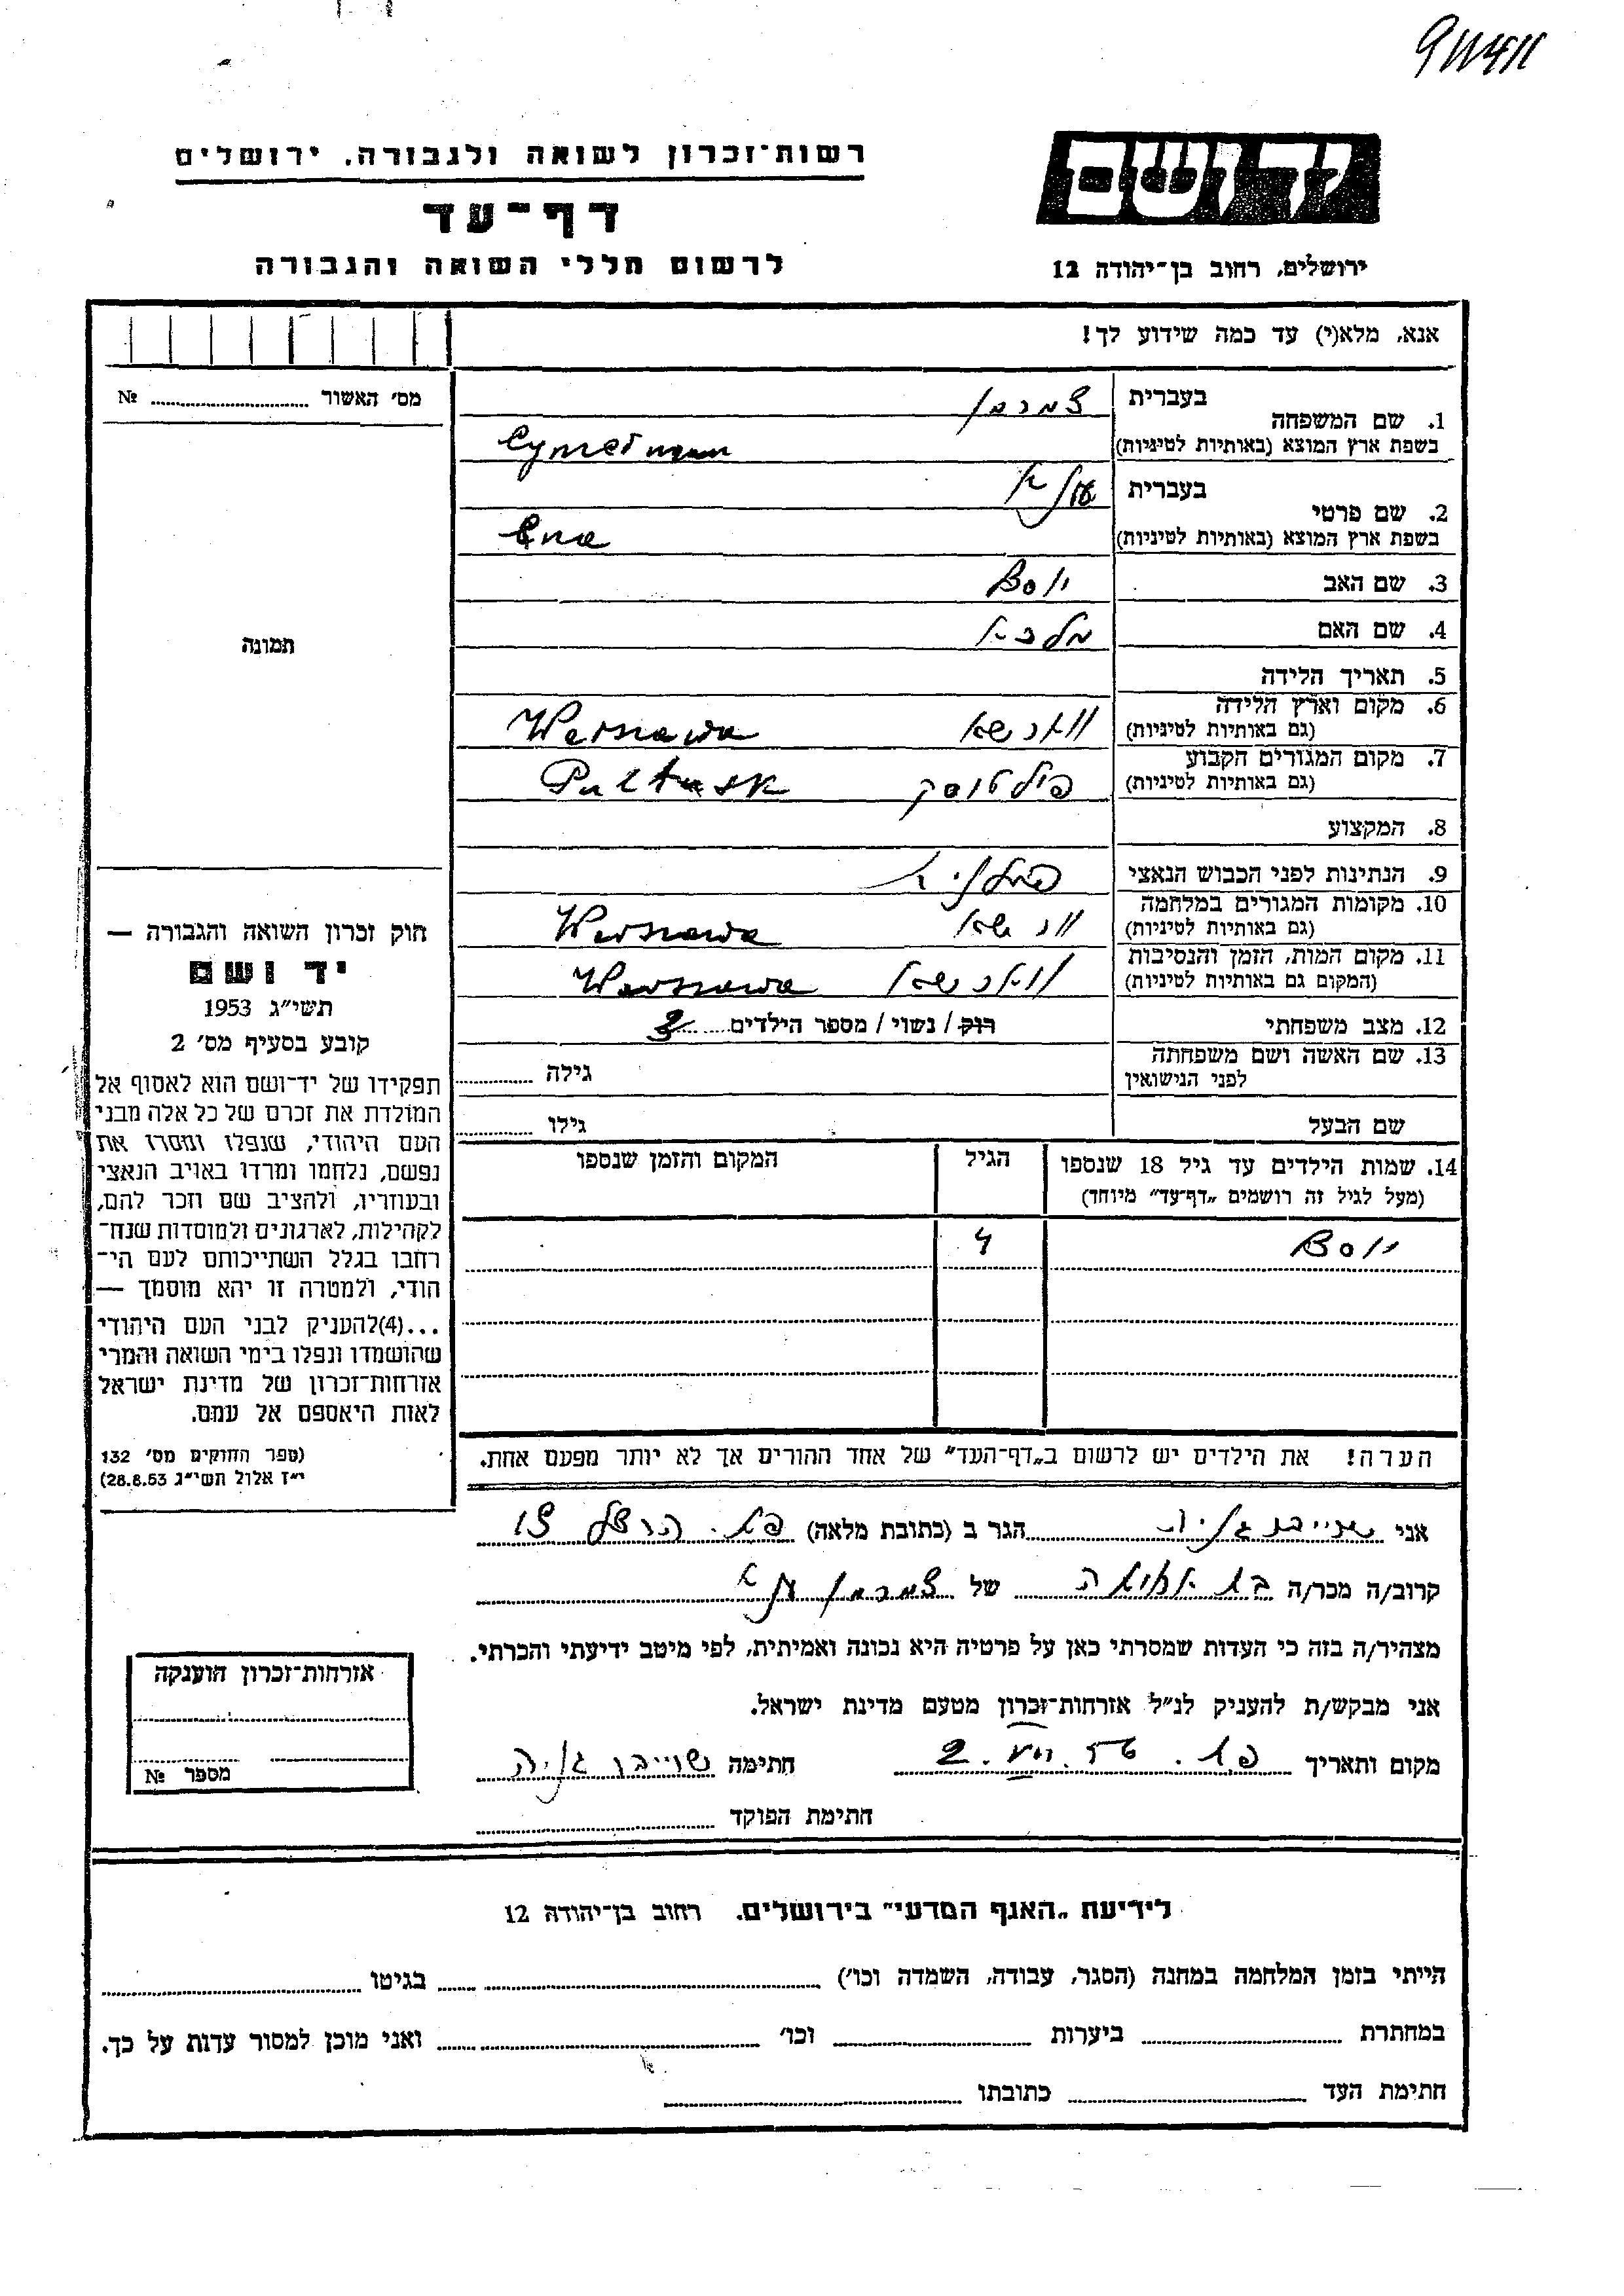 רשות־זכרון לשואה ולגבורה, ירושלים
יד ושם
דף־עד
לרשום חללי השואה והגבורה
ירושלים, רחוב בן־יהודה 12
אנא, מלא(י) עד כמה שידוע לך!
מס׳ האשור № 
1. שם המשפחה
בעברית צמרמן
בשפת ארץ המוצא (באותיות לטיניות) Cymerman
2. שם פרטי
בעברית
בשפת ארץ המוצא (באותיות לטיניות)
3. שם האב יוסף
4. שם האם מלכא
תמונה
5. תאריך הלידה
6. מקום וארץ הלידה
(גם באותיות לטיניות) ווארשא Warszawa
7. מקום המגורים הקבוע
(גם באותיות לטיניות) פולטוסק Pultusk
8. המקצוע
9. הנתינות לפני הכבוש הנאצי
10. מקומות המגורים במלחמה
(גם באותיות לטיניות) Warszawa
11. מקום המות, הזמן והנסיבות
(המקום גם באותיות לטיניות) ווארשא Warszawa
12. מצב משפחתי רוק / נשוי / מספר הילדים
13. שם האשה ושם משפחתה
לפני הנישואין
גילה
שם הבעל גילו
14. שמות הילדים עד גיל 18 שנספו הגיל המקום והזמן שנספו
(מעל לגיל זה רושמים „דף־עד״ מיוחד)
יוסף 4
הערה! את הילדים יש לרשום ב„דף־העד״ של אחד ההורים אך לא יותר מפעם אחת.
חוק זכרון השואה והגבורה —
יד ושם
תשי״ג 1953
קובע בסעיף מס׳ 2
תפקידו של יד־ושם הוא לאסוף אל
המולדת את זכרם של כל אלה מבני
העם היהודי, שנפלו ומסרו את
נפשם, נלחמו ומרדו באויב הנאצי
ובעוזריו, ולהציב שם וזכר להם,
לקהילות, לארגונים ולמוסדות שנח־
רחבו בגלל השתייכותם לעם הי־
הודי, ולמטרה זו יהא מוסמך —
...(4)להעניק לבני העם היהודי
שהושמדו ונפלו בימי השואה והמרי
אזרחות־זכרון של מדינת ישראל
לאות היאספם אל עמם.
(ספר החוקים מס׳ 132
י״ז אלול תשי״ג 28.8.53)
אני הגר ב (כתובת מלאה)
קרוב/ה מכר/ה של צמרמן
מצהיר/ה בזה כי העדות שמסרתי כאן על פרטיה היא נכונה ואמיתית, לפי מיטב ידיעתי והכרתי.
אני מבקש/ת להעניק לנ״ל אזרחות־זכרון מטעם מדינת ישראל.
מקום ותאריך חתימה
חתימת הפוקד
אזרחות־זכרון הוענקה
מספר №
לידיעת „האגף המדעי״ בירושלים, רחוב בן־יהודה 12
הייתי בזמן המלחמה במחנה (הסגר, עבודה, השמדה וכו׳) בגיטו
במחתרת ביערות וכו׳ ואני מוכן למסור עדות על כך.
חתימת העד כתובתו